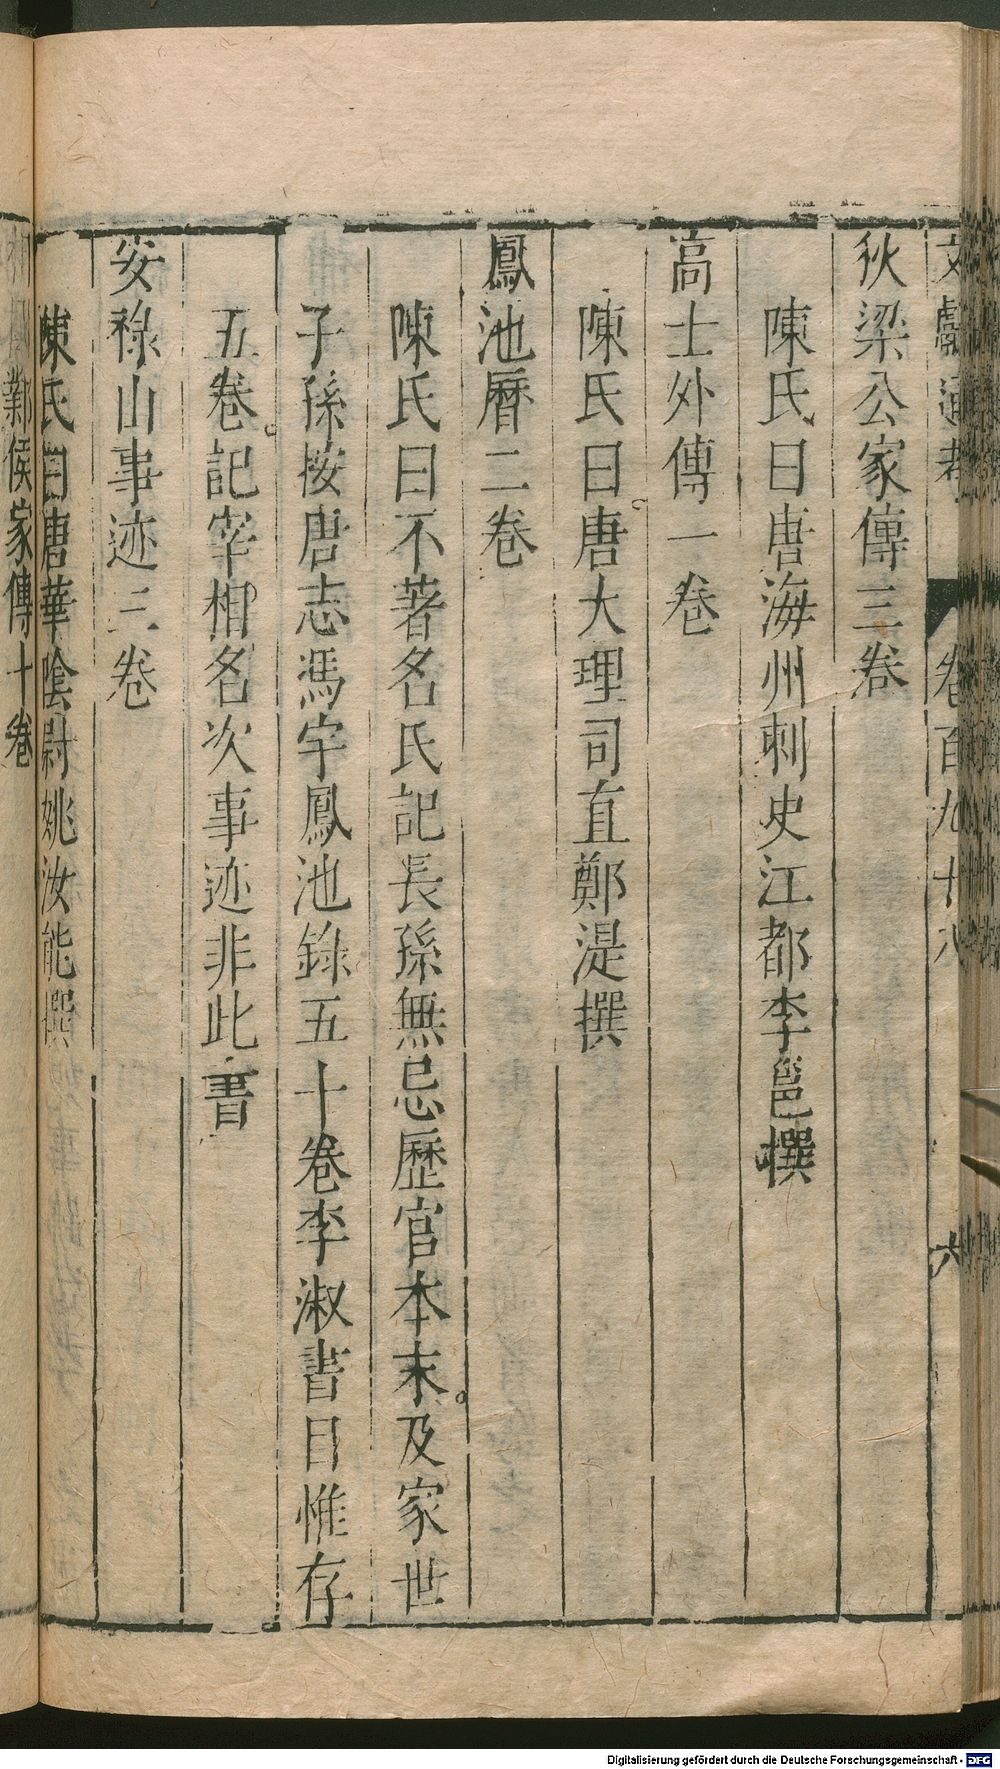 文獻通考 卷百九十八 六
狄梁公家傳三卷
陳氏曰唐海州刺史江都李邕撰
高士外傳一卷
陳氏曰唐大理司直鄭湜撰
鳳池曆二卷
陳氏曰不著名氏記長孫無忌歷官本末及家世
子孫按唐志馮宇鳳池錄五十卷李淑書目惟存
五卷記宰相名次事迹非此書
安祿山事迹三卷
陳氏曰唐華陰尉姚汝能撰
鄴侯家傳十卷
Digitalisierung gefördert durch die Deutsche Forschungsgemeinschaft - DFG